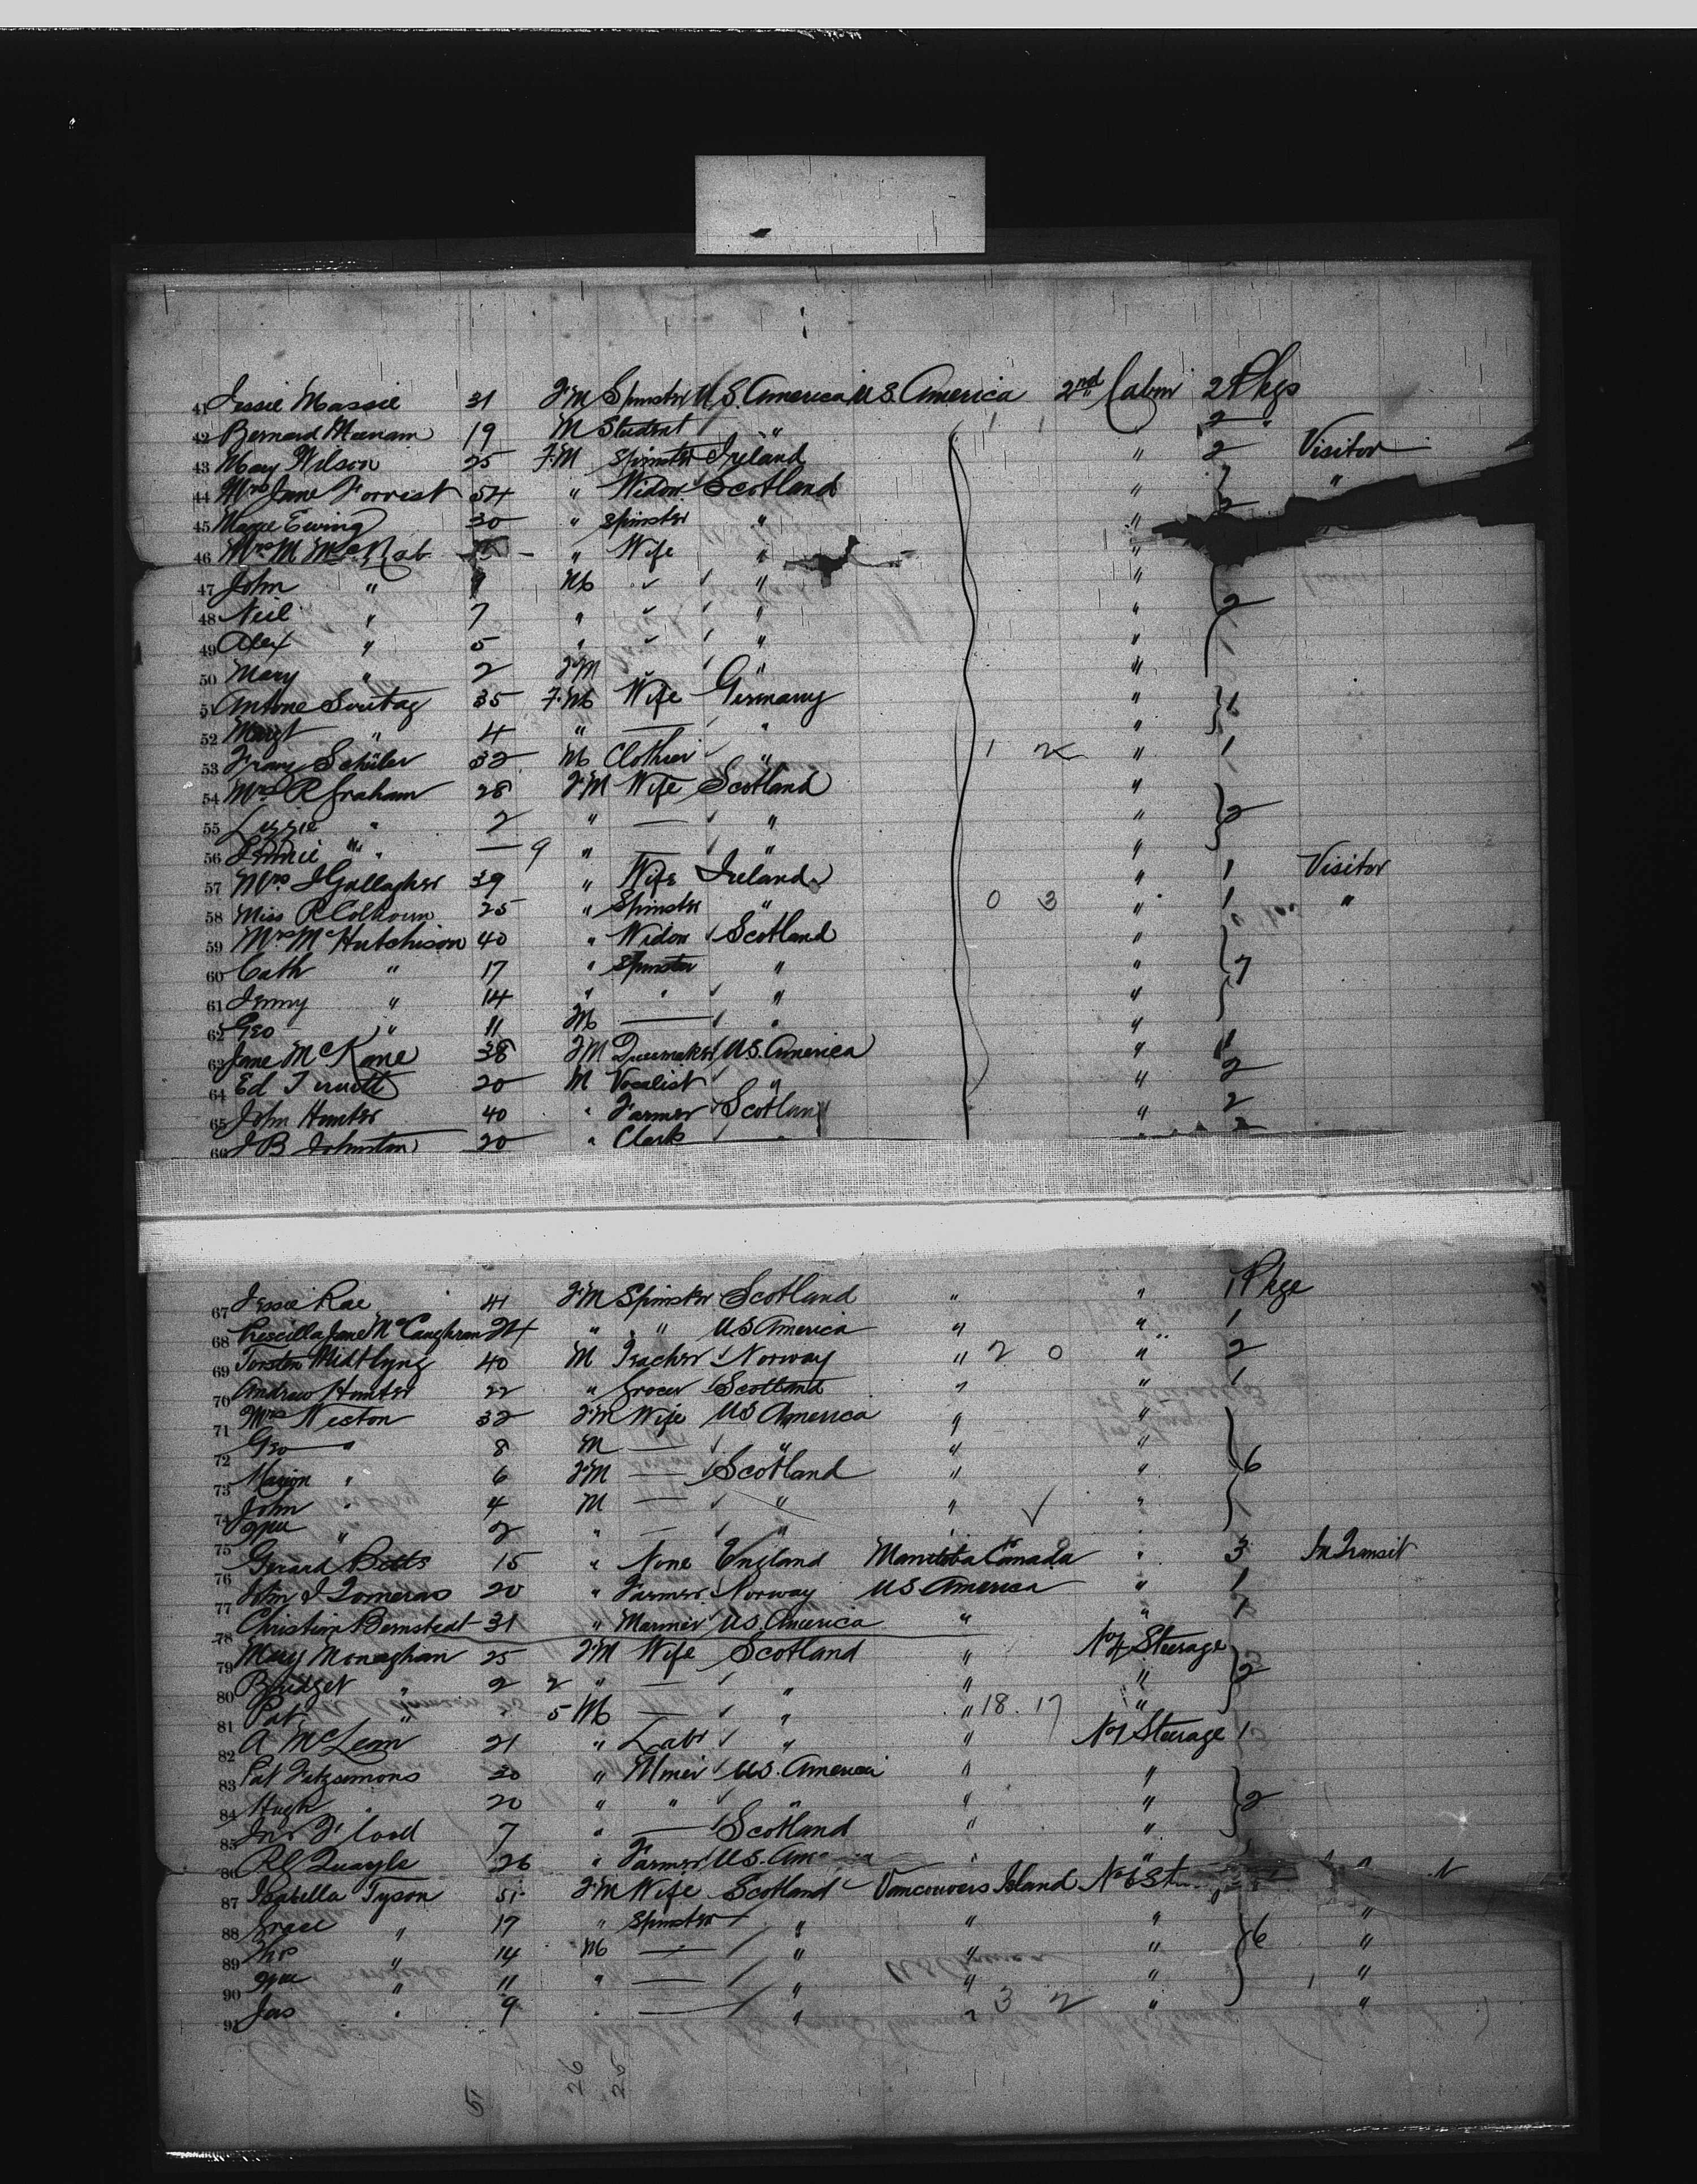 41 Jessie Massie 31 F.M Spinster U.S. America U.S. America 2nd Cabin 2 Pkgs
42 Bernard 19 M Student " 2 "
43 Mary Wilson 25 F.M Spinster Ireland " 2 Visitor
44 Mrs Jane Forrest 54 " Widow Scotland " "
45 Maggie Ewing 30 " Spinster " " 2
46 Mrs M McNab " Wife " "
47 John " 9 M " "
48 Neil " 7 " " " 2
49 Alex " 5 " " "
50 Mary " 2 F.M " "
51 Antone 35 F.M Wife Germany " 1
52 Margt " 4 " — " "
53 Franz Schüler 32 M Clothier " 1 " 1
54 Mrs R Graham 28 F.M Wife Scotland "
55 Lizzie " 2 " — " " 2
56 " — 9 " — " "
57 Mrs J Gallagher 39 " Wife Ireland " 1 Visitor
58 Miss R Colhoun 25 " Spinster " 0 3 " 1 "
59 Mrs Mc Hutchison 40 " Widow Scotland "
60 Cath " 17 " Spinster " " 7
61 Jenny " 14 " " " "
62 Geo " 11 M — " "
63 Jane McKane 38 F.M Dressmaker U.S. America " 1
64 Ed 20 M Vocalist " " 2
65 John Hunter 40 " Farmer Scotland " 2
66 J B Johnston 20 " Clerk " " 2
67 Jessie Rae 41 F.M Spinster Scotland " " 1 Pkge
68 Prescilla Jane McCaughran 24 " " U.S America " " 1
69 Torsten Midtlyng 40 M Teacher Norway " 2 0 " 2
70 Andrew Hunter 22 " Grocer Scotland " " 1
71 Mrs Weston 32 F.M Wife U.S America " "
72 Geo " 8 M — " " "
73 Marion " 6 F.M — Scotland " " 6
74 John " 4 M — " " "
75 Wm " 2 " — " " "
76 Gerard Betts 15 " None England Manitoba Canada " 3 In Transit
77 20 " Farmer Norway U.S America " 1
78 Christian Bernstedt 31 " Mariner U.S. America " " 1
79 Mary Monaghan 25 F.M Wife Scotland " No 4 Steerage
80 Bridget " 2 2 " — " " " 2
81 Pat " " 5 M — " " 18 . 17 "
82 A McLean 21 " Labr " " No 1 Steerage 1
83 Pat Fitzsimons 30 " Miner U.S. America " "
84 Hugh " 20 " " " " " 2
85 Jno F 7 " — Scotland " "
86 Quayle 26 " Farmer U.S. " "
87 Isabella Tyson 51 F.M Wife Scotland Vancouvers Island No 6
88 Grace " 17 " Spinster " " " "
89 " 14 M — " " " 6 "
90 Wm " 11 " — " " " "
91 Jas " 9 " — " " 3 2 " "
5 26 26